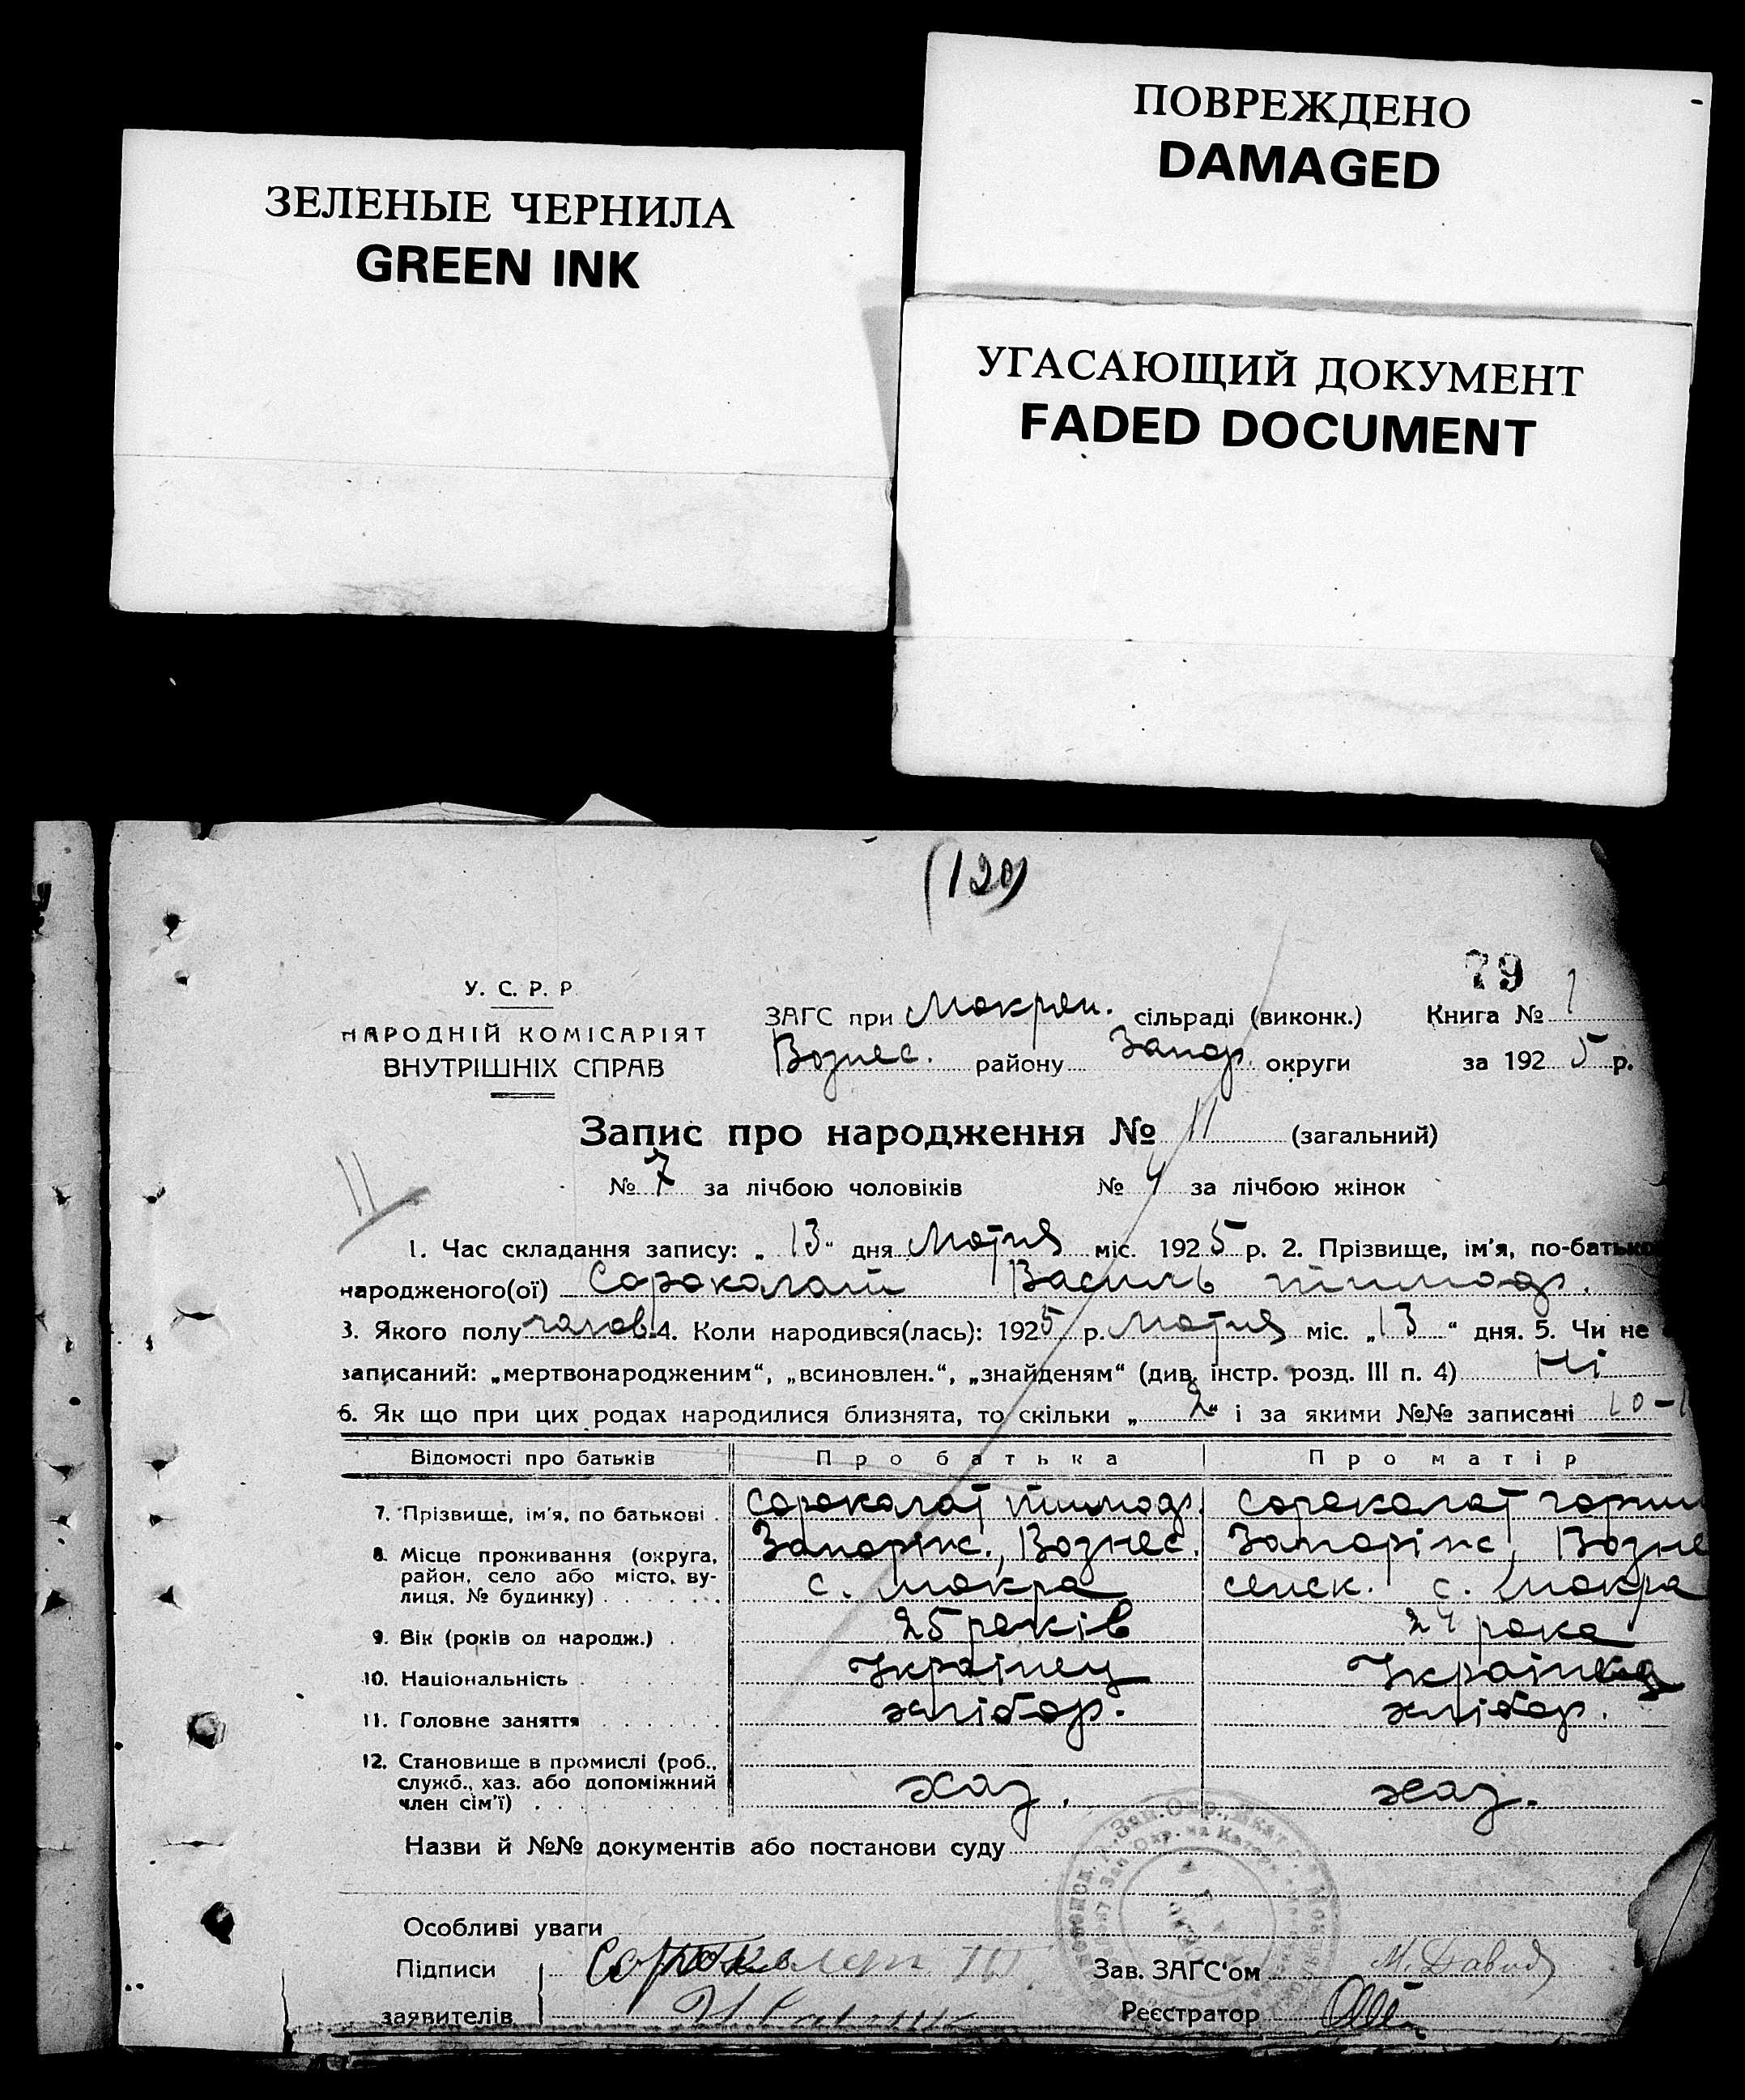 ЗЕЛЕНЫЕ ЧЕРНИЛА
GREEN INK
ПОВРЕЖДЕНО
DAMAGED
УГАСАЮЩИЙ ДОКУМЕНТ
FADED DOCUMENT
(120)
79
У. С. Р. Р.
НАРОДНІЙ КОМІСАРІЯТ
ВНУТРІШНІХ СПРАВ
ЗАГС при Мокрян. сільраді (виконк.) Книга № 1
Вознес. району Запор. округи за 1925 р.
Запис про народження № 11 (загальний)
11
№ 7 за лічбою чоловіків № 4 за лічбою жінок
1. Час складання запису: „13“ дня міс. 1925 р. 2. Прізвище, ім'я, по-батьков
народженого(ої) Сорокалат Василь Тимоф.
3. Якого полу чолов. 4. Коли народився(лась): 1925 р. міс. „13“ дня. 5. Чи не
записаний: „мертвонародженим“, „всиновлен.“, „знайденям“ (див. інстр. розд. III п. 4) Ні
6. Як що при цих родах народилися близнята, то скільки „2“ і за якими №№ записані 10-1
Відомості про батьків Про батька Про матір
7. Прізвище, ім'я, по батькові . Сорокалат Тимоф. Сорокалат
8. Місце проживання (округа, район, село або місто, вулиця, № будинку) Запоріж., Вознес. с. Мокра Запоріж, Вознесенск. с. Мокра
9. Вік (років од народж.) . 25 років 24 рока
10. Національність . Українец Українка
11. Головне заняття хлібор. хлібор.
12. Становище в промислі (роб., служб., хаз. або допоміжний член сім'ї) хаз. хаз.
Назви й №№ документів або постанови суду
Особливі уваги
Підписи Сорокалат Зав. ЗАГС'ом М. Давид
заявителів Реєстратор